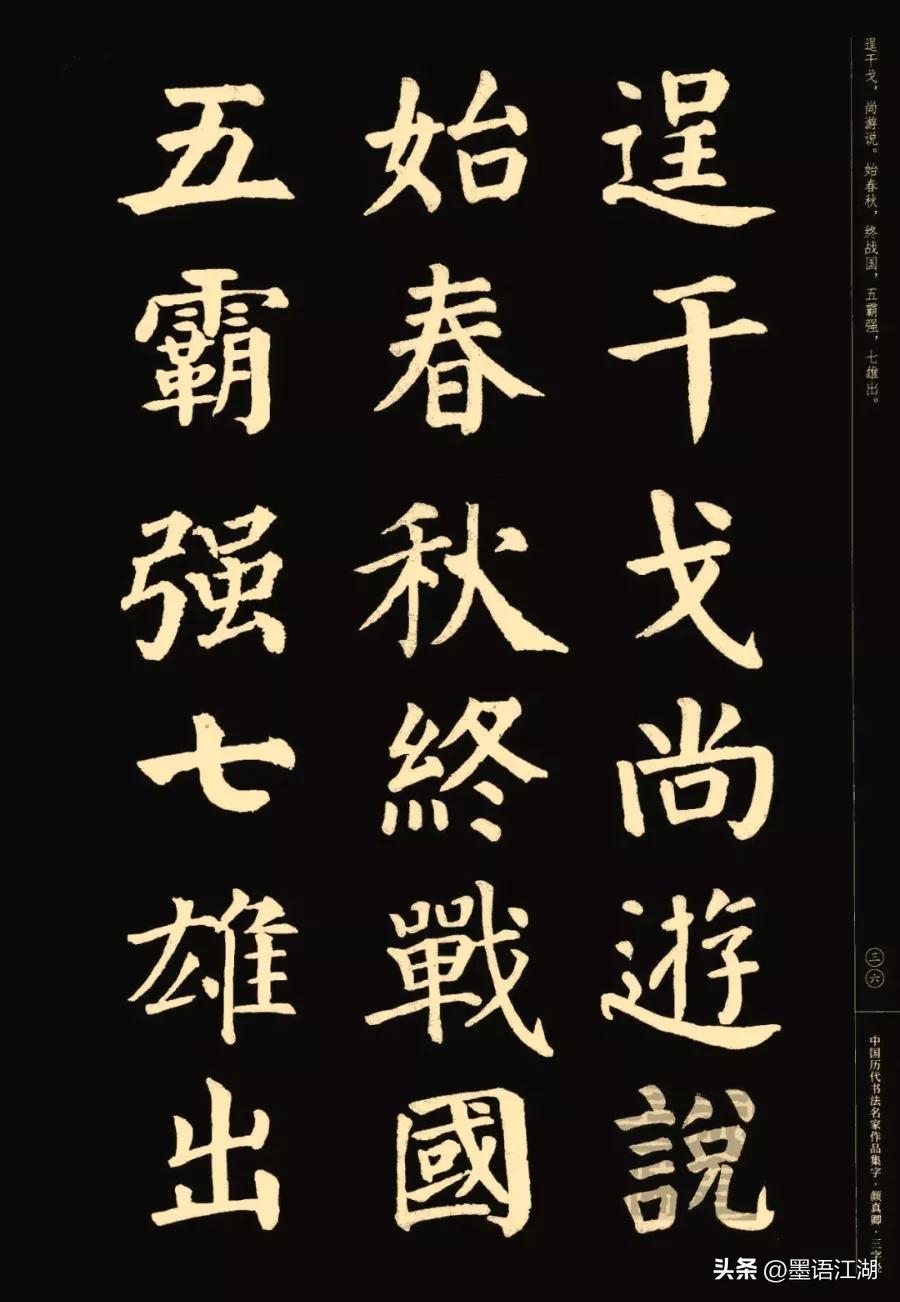 逞干戈尚遊說
始春秋終戰國
五霸强七雄出
逞干戈，尚游说。始春秋，终战国，五霸强，七雄出。
三六
中国历代书法名家作品集字·颜真卿·三字经
头条 @墨语江湖